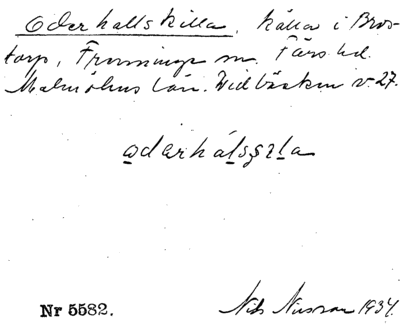 Oderhallskilla, källa i Bros-
torp, Frenninge sn. Färs hd.
Malmöhus län. Vid bäcken v. 27.
Nr 5582.
Nils Nilsson 1934.